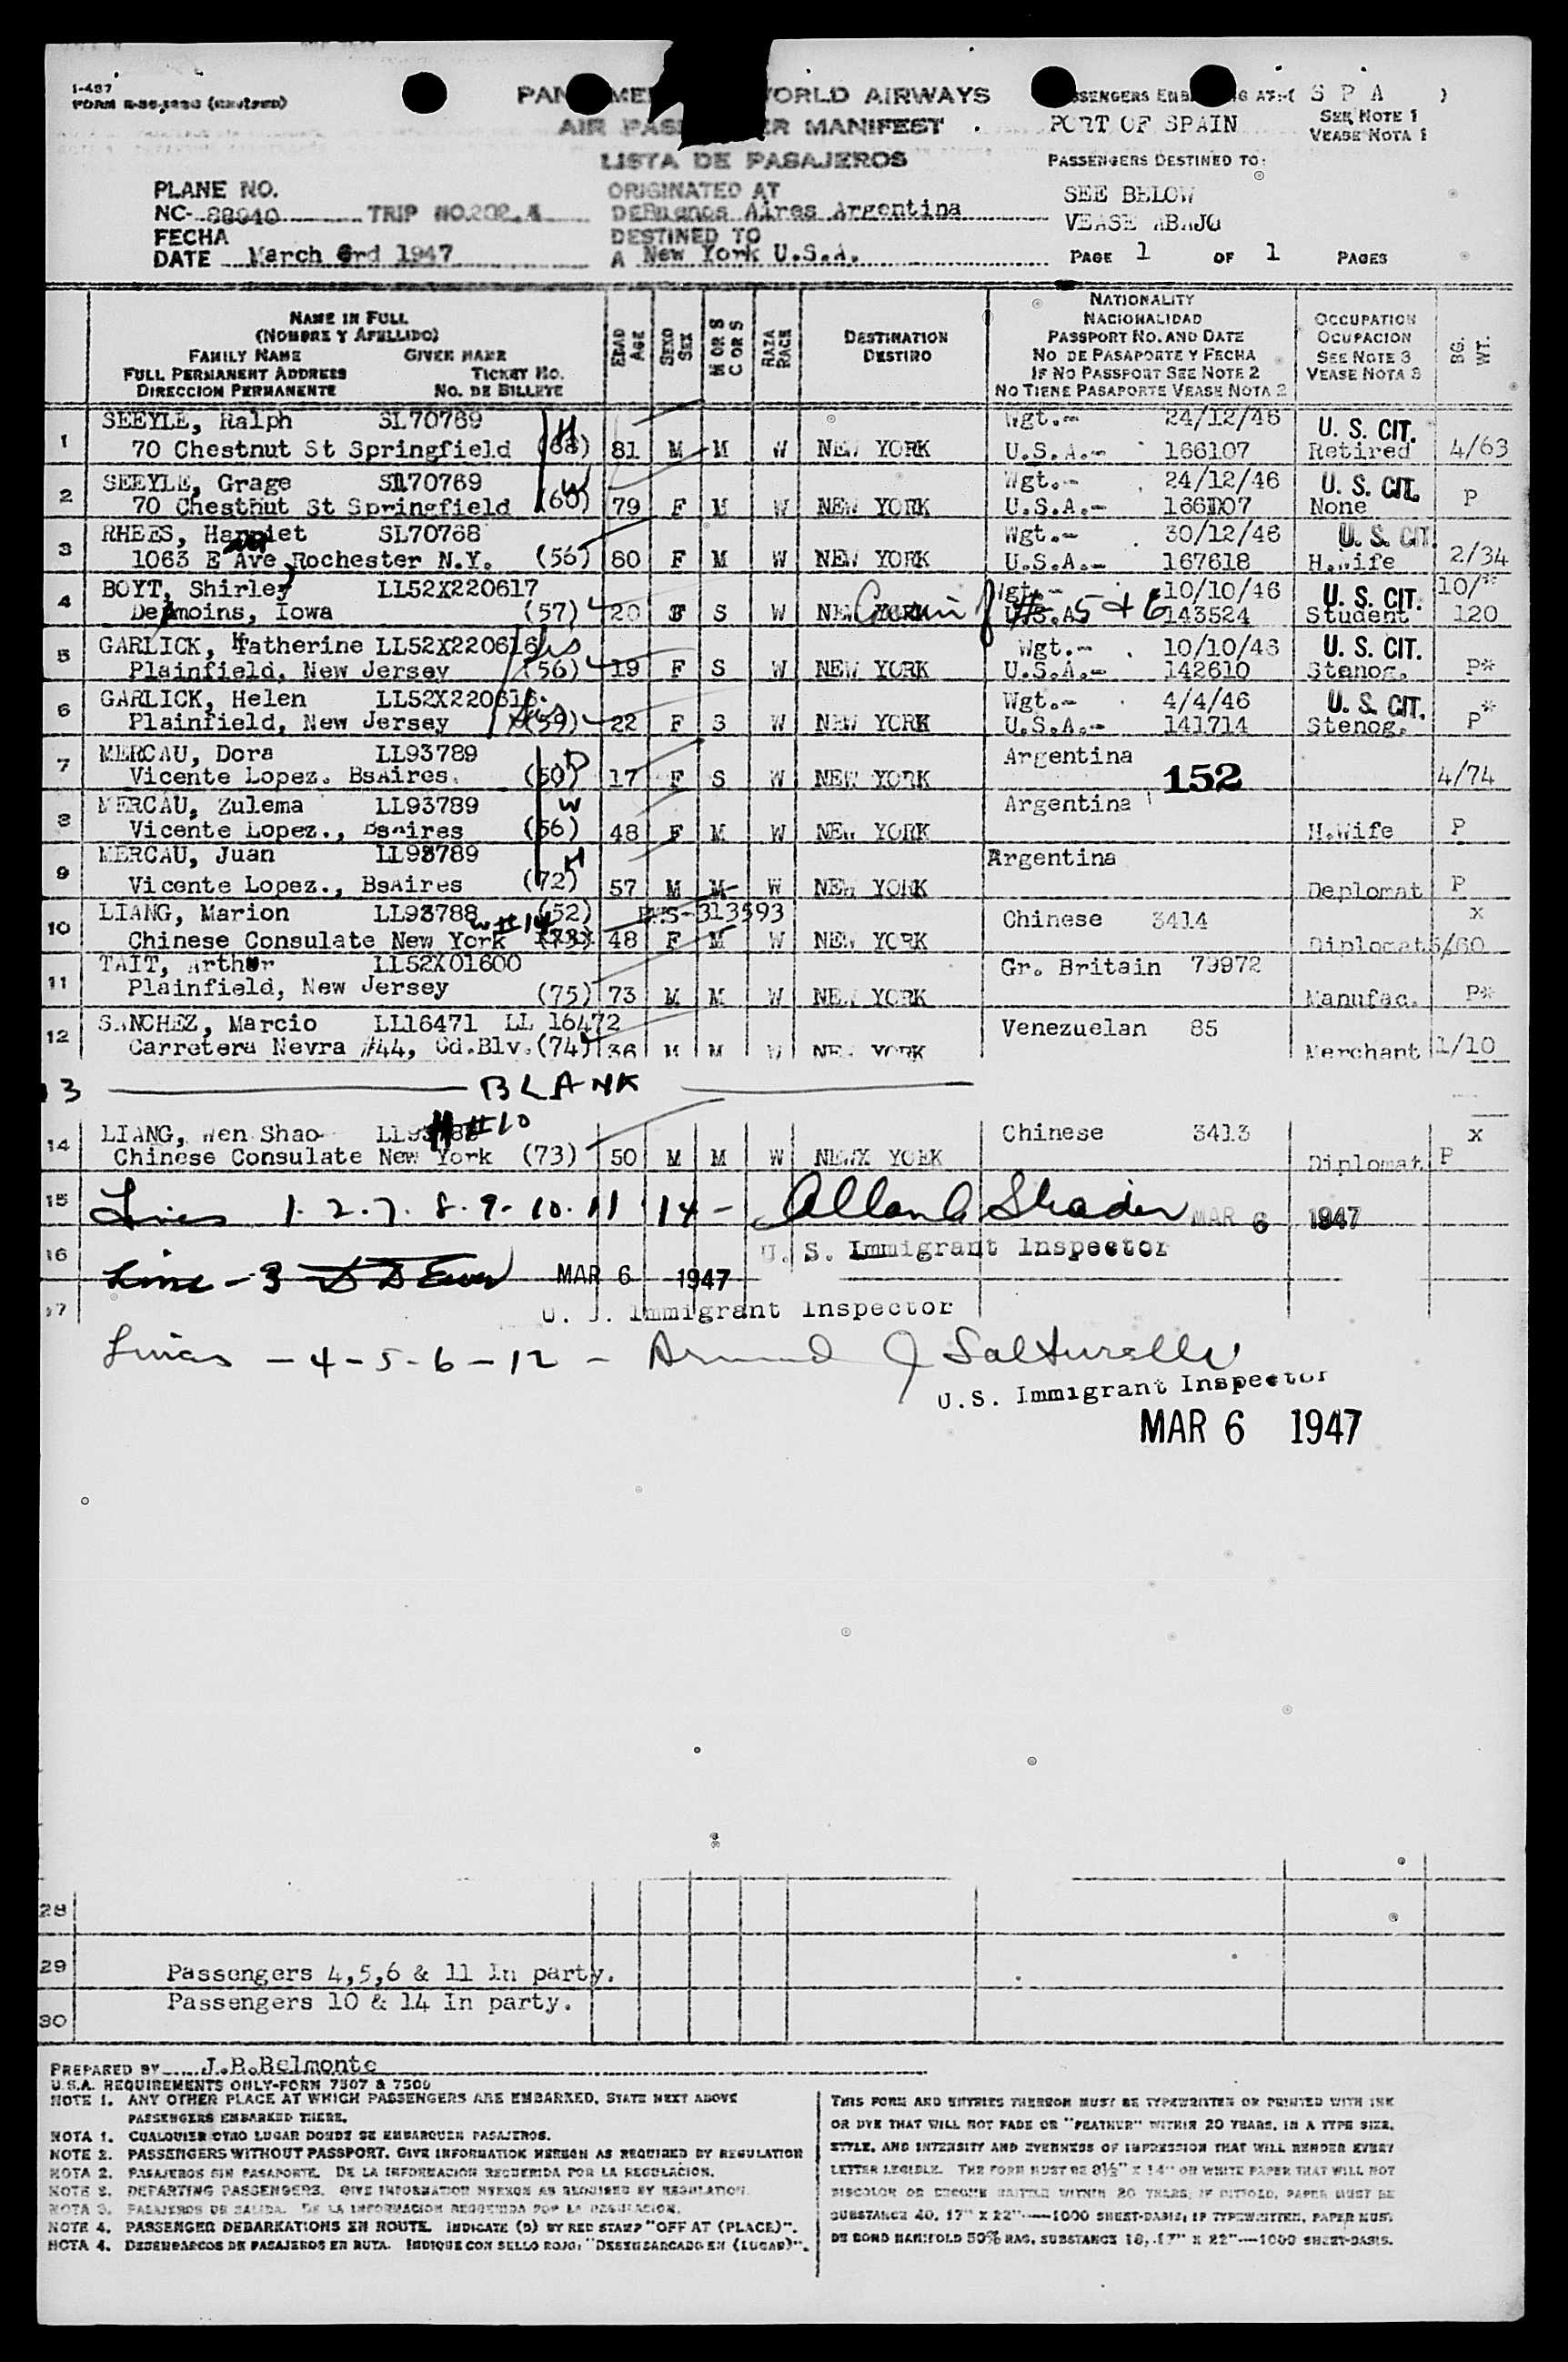 I-487
FORM (REVISED)
WORLD AIRWAYS
AIR MANIFEST
LISTA DE PASAJEROS
PASSENGERS AT:( S P A )
PORT OF SPAIN
SEE NOTE 1
VEASE NOTA 1
PASSENGERS DESTINED TO:
SEE BELOW
VEASE ABAJO
PAGE 1 OF 1 PAGES
PLANE NO.
NC- 88940 TRIP NO.202.A
FECHA
DATE March 6rd 1947
ORIGINATED AT
DE Buenos Aires Argentina
DESTINED TO
A New York U.S.A.
NAME IN FULL
(NOMBRE Y APELLIDO)
FAMILY NAME GIVEN NAME
FULL PERMANENT ADDRESS TICKET NO.
DIRECCION PERMANENTE NO. DE BILLETE
EDAD AGE
SEXO SEX
M OR S C OR S
RAZA RACE
DESTINATION
DESTINO
NATIONALITY
NACIONALIDAD
PASSPORT NO. AND DATE
NO DE PASAPORTE Y FECHA
IF NO PASSPORT SEE NOTE 2
NO TIENE PASAPORTE VEASE NOTA 2
OCCUPATION
OCUPACION
SEE NOTE 3
VEASE NOTA 3
BG. WT.
1 SEEYLE, Ralph SL70769 H Wgt.- 24/12/46 U. S. CIT.
70 Chestnut St Springfield (68) 81 M M W NEW YORK U.S.A.- 166107 Retired 4/63
2 SEEYLE, Grage SL70769 W Wgt.- 24/12/46 U. S. CIT.
70 Chestnut St Springfield (60) 79 F M W NEW YORK U.S.A.- 166107 None P
3 RHEES, Harriet SL70768 Wgt.- 30/12/46 U. S. CIT.
1063 E Ave Rochester N.Y. (56) 80 F M W NEW YORK U.S.A.- 167618 H.wife 2/34
4 BOYT, Shirley LL52X220617 Wgt.- 10/10/46 U. S. CIT. 10/**
Desmoins, Iowa (57) 20 F S W NEW YORK Cousin of # 5 + 6 U.S.A. 143524 Student 120
5 GARLICK, Katherine LL52X220616 sis Wgt.- 10/10/46 U. S. CIT.
Plainfield, New Jersey (56) 19 F S W NEW YORK U.S.A.- 142610 Stenog. P*
6 GARLICK, Helen LL52X220618 sis Wgt.- 4/4/46 U. S. CIT.
Plainfield, New Jersey (59) 22 F S W NEW YORK U.S.A.- 141714 Stenog. P*
7 MERCAU, Dora LL93789 D Argentina
Vicente Lopez. BsAires. (50) 17 F S W NEW YORK 152 4/74
8 MERCAU, Zulema LL93789 W Argentina
Vicente Lopez., BsAires (56) 48 F M W NEW YORK H.Wife P
9 MERCAU, Juan LL93789 H Argentina
Vicente Lopez., BsAires (72) 57 M M W NEW YORK Deplomat P
10 LIANG, Marion LL93788 W #14 (52) 313593 Chinese 3414 x
Chinese Consulate New York 48 F M W NEW YORK Diplomat 5/60
11 TAIT, Arthur LL52X01600 Gr. Britain 79972
Plainfield, New Jersey (75) 73 M M W NEW YORK Manufac. P*
12 SANCHEZ, Marcio LL16471 LL 16472 Venezuelan 85
Carretera Nevra #44, Cd.Blv.(74) 36 M M W NEW YORK Merchant 1/10
13 BLANK
14 LIANG, Wen Shao LL93788 H #10 Chinese 3413 x
Chinese Consulate New York (73) 50 M M W NEWX YORK Diplomat P
15 Lines 1. 2. 7. 8. 9. 10. 11 14 - Allan Shader MAR 6 1947
16 U. S. Immigrant Inspector
Line - 3 MAR 6 1947
17 U. S. Immigrant Inspector
Lines - 4 - 5 - 6 - 12 - Armand J Salturelli
U.S. Immigrant Inspector
MAR 6 1947
28
29 Passengers 4,5,6 & 11 In party.
Passengers 10 & 14 In party.
30
PREPARED BY J.B.Belmonte
U.S.A. REQUIREMENTS ONLY-FORM 7507 & 7509
NOTE 1. ANY OTHER PLACE AT WHICH PASSENGERS ARE EMBARKED, STATE NEXT ABOVE
PASSENGERS EMBARKED THERE.
NOTA 1. CUALQUIER OTRO LUGAR DONDE SE EMBARQUEN PASAJEROS.
NOTE 2. PASSENGERS WITHOUT PASSPORT. GIVE INFORMATION HEREON AS REQUIRED BY REGULATION
NOTA 2. PASAJEROS SIN PASAPORTE. DE LA INFORMACION REQUERIDA POR LA REGULACION.
NOTE 3. DEPARTING PASSENGERS. GIVE INFORMATION HEREON AS REQUIRED BY REGULATION.
NOTA 3. PASAJEROS DE SALIDA. DE LA INFORMACION REQUERIDA POR LA REGULACION.
NOTE 4. PASSENGER DEBARKATIONS EN ROUTE. INDICATE (D) BY RED STAMP "OFF AT (PLACE)".
NOTA 4. DESEMBARCOS DE PASAJEROS EN RUTA. INDIQUE CON SELLO ROJO: "DESEMBARCADO EN (LUGAR)".
THIS FORM AND ENTRIES THEREON MUST BE TYPEWRITTEN OR PRINTED WITH INK
OR DYE THAT WILL NOT FADE OR "FEATHER" WITHIN 20 YEARS, IN A TYPE SIZE,
STYLE, AND INTENSITY AND EVENNESS OF IMPRESSION THAT WILL RENDER EVERY
LETTER LEGIBLE. THE FORM MUST BE 8½" X 14" ON WHITE PAPER THAT WILL NOT
DISCOLOR OR BECOME BRITTLE WITHIN 20 YEARS; IF DITTOED, PAPER MUST BE
SUBSTANCE 40, 17" X 22"—1000 SHEET-BASIS; IF TYPEWRITTEN, PAPER MUST
BE BOND MANIFOLD 50% RAG, SUBSTANCE 16, 17" X 22"—1000 SHEET-BASIS.